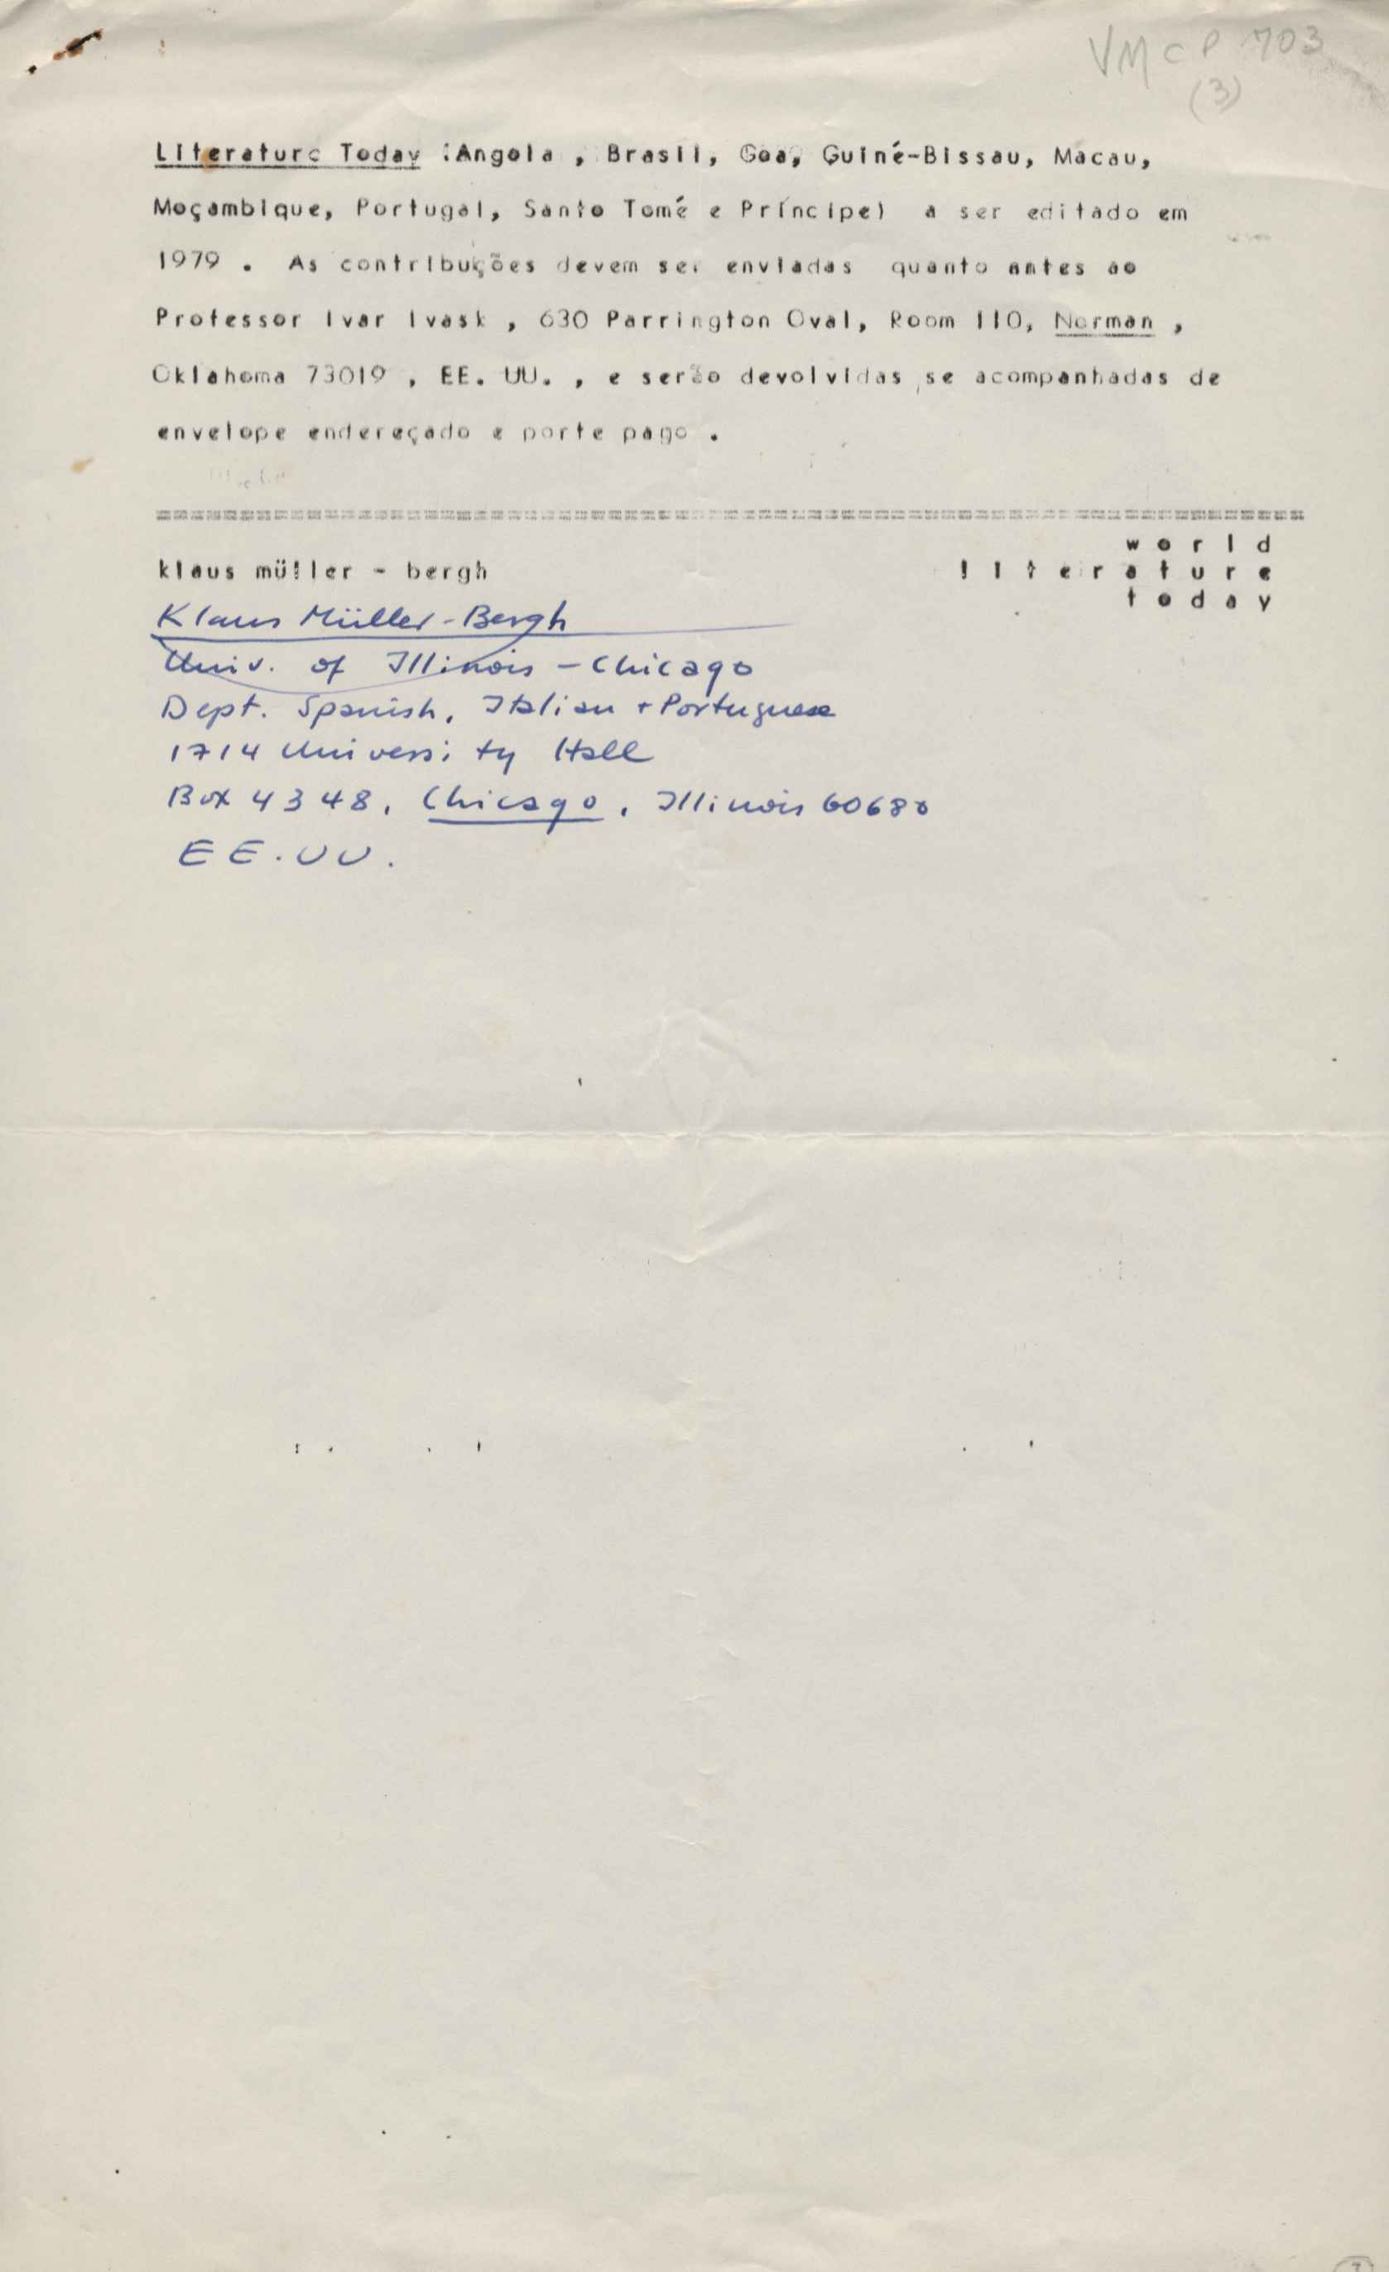 VM CP 703
(3)
Literature Today (Angola , Brasil, Goa, Guiné-Bissau, Macau,
Moçambique, Portugal, Santo Tomé e Príncipe) a ser editado em
1979 . As contribuções devem ser enviadas quanto antes ao
Professor Ivar Ivask , 630 Parrington Oval, Room 110, Norman ,
Oklahoma 73019 , EE. UU. , e serão devolvidas se acompanhadas de
envelope endereçado e porte pago .
world
klaus müller - bergh literature
today
Klaus Müller-Bergh
Univ. of Illinois - Chicago
Dept. Spanish, Italian + Portuguese
1714 University Hall
Box 4348, Chicago, Illinois 60680
EE.UU.